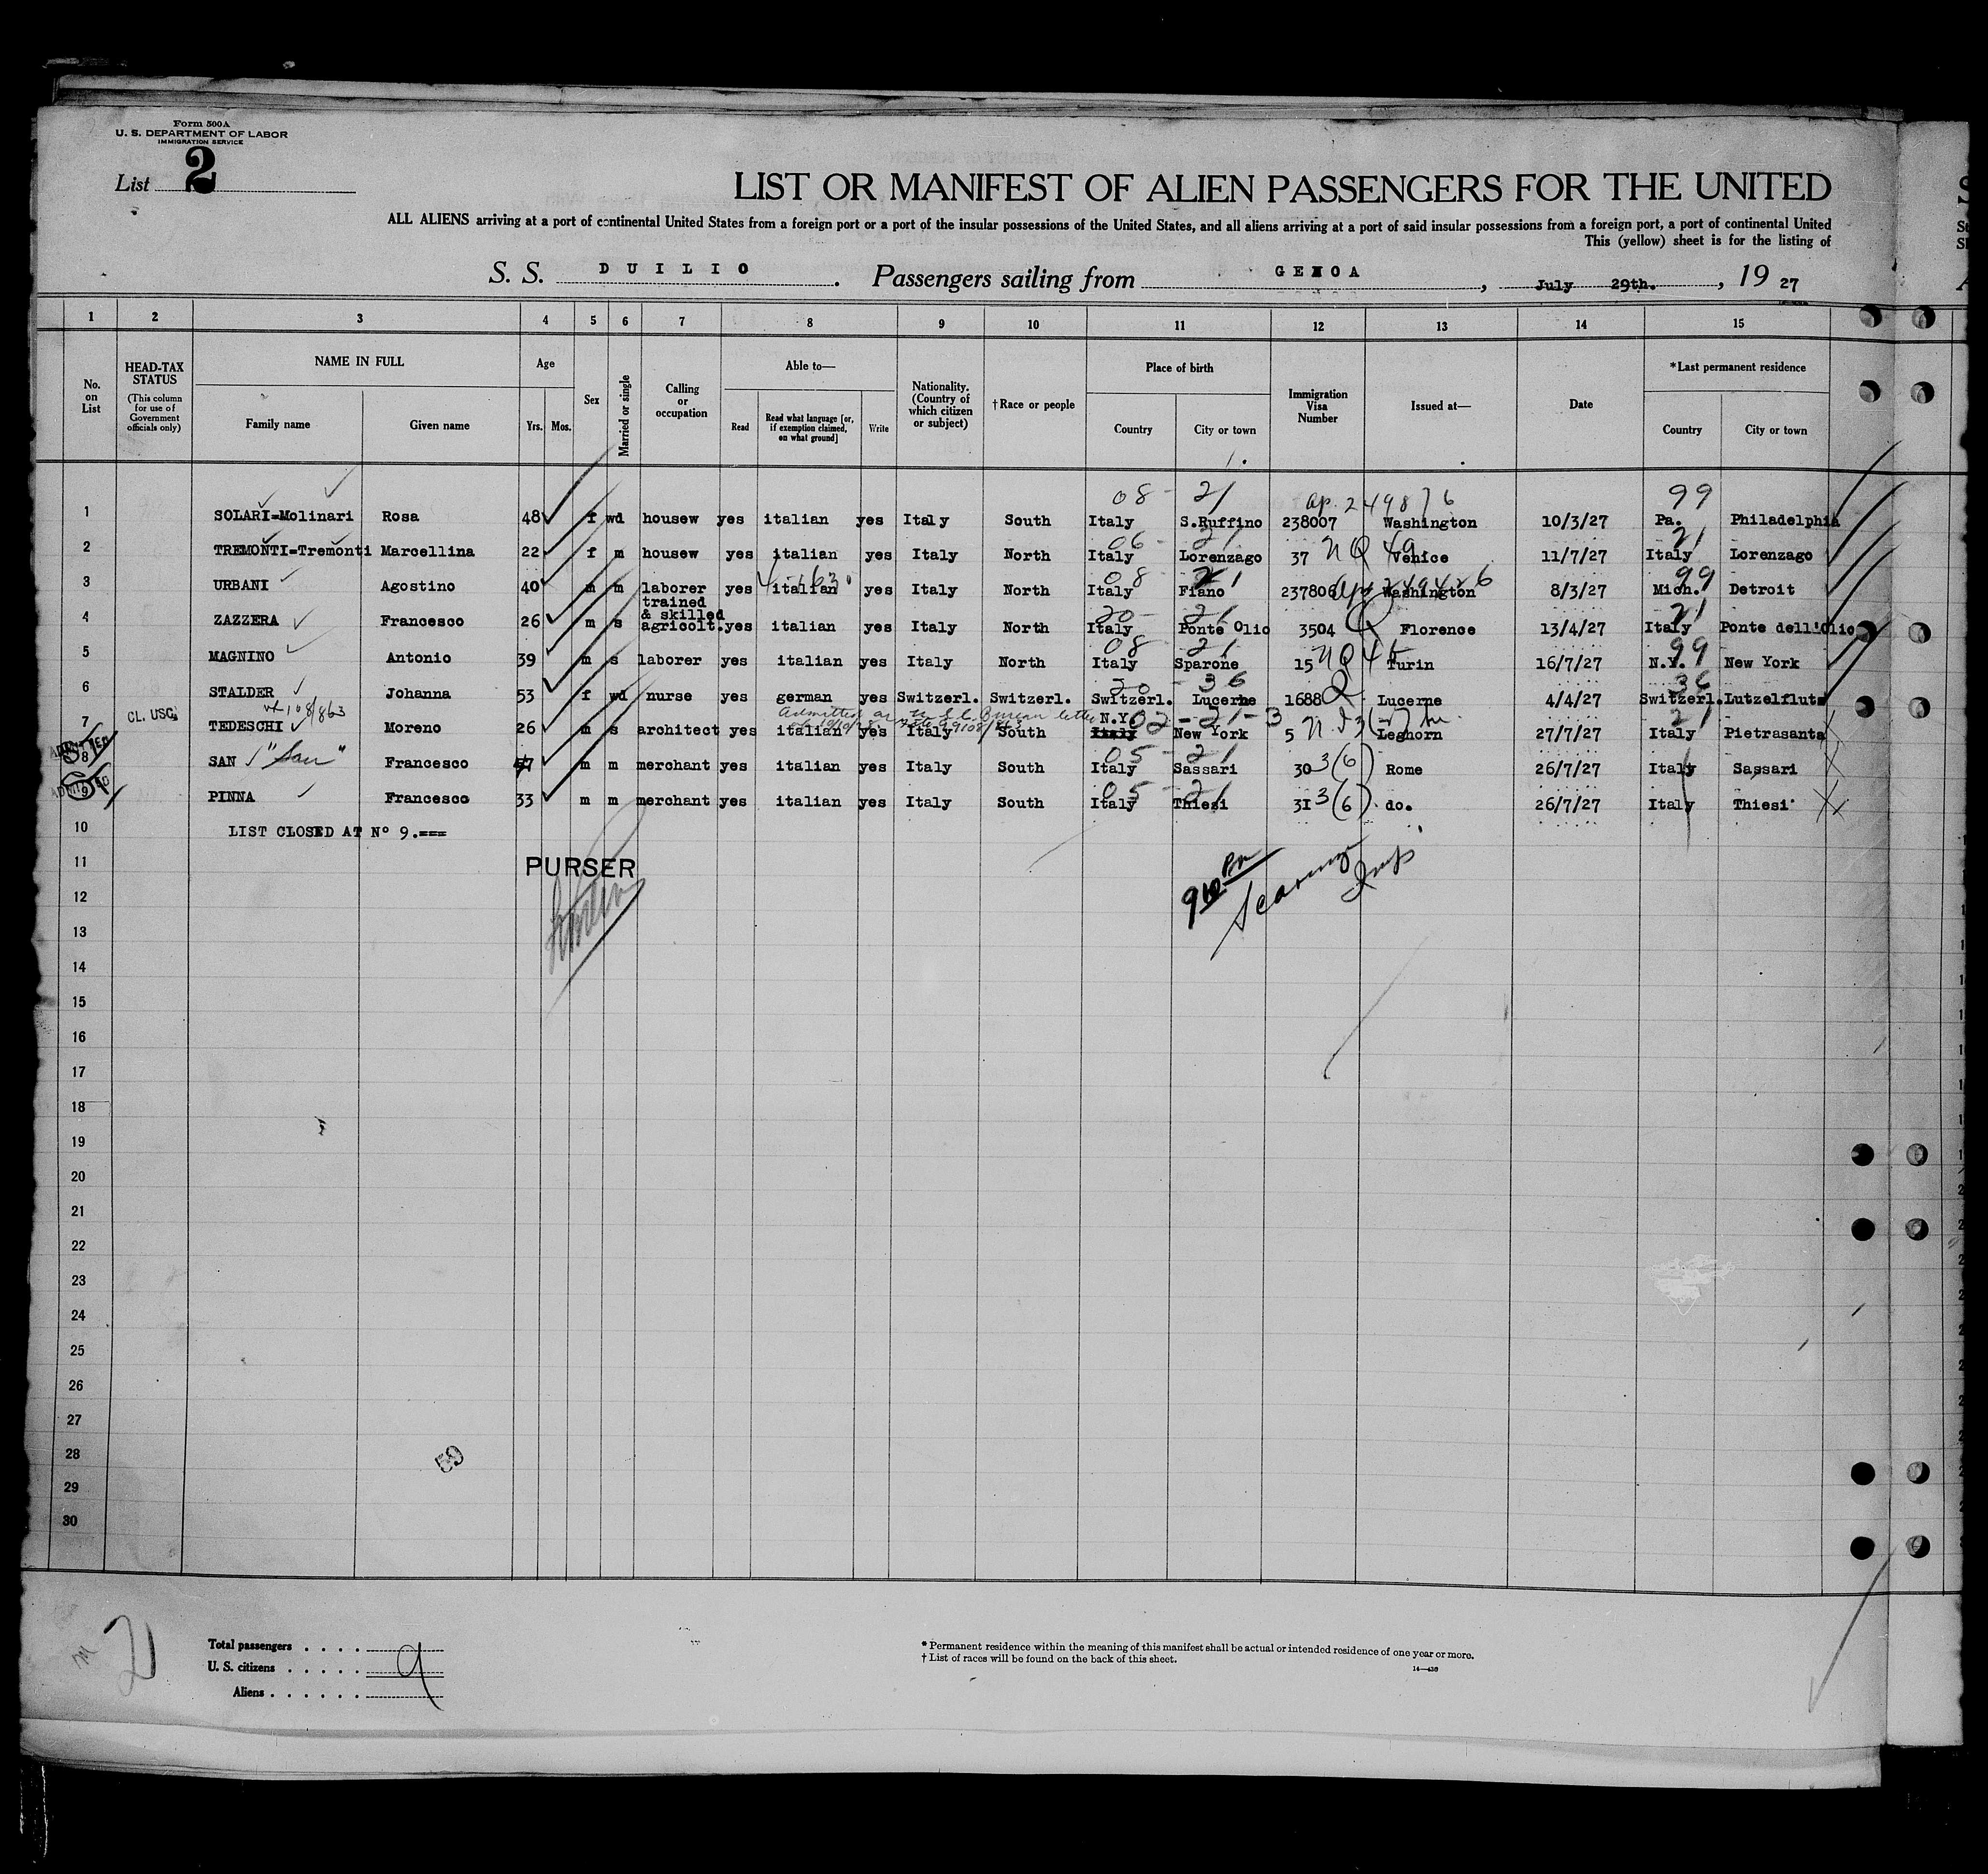 Form 500A
U. S. DEPARTMENT OF LABOR
IMMIGRATION SERVICE
List 2
LIST OR MANIFEST OF ALIEN PASSENGERS FOR THE UNITED
ALL ALIENS arriving at a port of continental United States from a foreign port or a port of the insular possessions of the United States, and all aliens arriving at a port of said insular possessions from a foreign port, a port of continental United
This (yellow) sheet is for the listing of
S. S. DUILIO. Passengers sailing from GENOA, July 29th., 19 27
1 2 3 4 5 6 7 8 9 10 11 12 13 14 15
No. on List
HEAD-TAX STATUS (This column for use of Government officials only)
NAME IN FULL
Family name Given name
Age
Yrs. Mos.
Sex
Married or single
Calling or occupation
Able to—
Read Read what language [or, if exemption claimed, on what ground] Write
Nationality. (Country of which citizen or subject)
†Race or people
Place of birth
Country City or town
Immigration Visa Number
Issued at—
Date
*Last permanent residence
Country City or town
08 - 21 ap. 249876 99
1 SOLARI=Molinari Rosa 48 f wd housew yes italian yes Italy South Italy S.Ruffino 238007 Washington 10/3/27 Pa. Philadelphia
06 - 21 NQ 49 21
2 TREMONTI=Tremonti Marcellina 22 f m housew yes italian yes Italy North Italy Lorenzago 37 Venice 11/7/27 Italy Lorenzago
08 - 21 249426 99
3 URBANI Agostino 40 m m laborer yes italian yes Italy North Italy Fiano 237806 Washington 8/3/27 Mich. Detroit
20 - 21 Q 21
4 ZAZZERA Francesco 26 m s trained & skilled agricolt. yes italian yes Italy North Italy Ponte Olio 3504 Florence 13/4/27 Italy Ponte dell'Olio
08 - 21 NQ 99
5 MAGNINO Antonio 39 m s laborer yes italian yes Italy North Italy Sparone 15 Turin 16/7/27 N.Y. New York
20 - 36 Q 36
6 STALDER Johanna 53 f wd nurse yes german yes Switzerl. Switzerl. Switzerl. Lucerne 1688 Lucerne 4/4/27 Switzerl. Lutzelfluts
108/863 Admitted as U.S.C. Bureau letter
02 - 21 - 3 21
7 CL. USC. TEDESCHI Moreno 26 m s architect yes italian yes Italy South N.Y. Italy New York 5 Leghorn 27/7/27 Italy Pietrasanta
05 - 21
8 ADMITTED SAN "San" Francesco 47 m m merchant yes italian yes Italy South Italy Sassari 30 3(6) Rome 26/7/27 Italy Sassari
05 - 21
9 ADMITTED PINNA Francesco 33 m m merchant yes italian yes Italy South Italy Thiesi 31 3(6) do. 26/7/27 Italy Thiesi
10 LIST CLOSED AT N° 9.===
11 PURSER
12
13
14
15
16
17
18
19
20
21
22
23
24
25
26
27
28
59
29
30
2
Total passengers . . . .
U. S. citizens . . . . . 9
Aliens . . . . . .
* Permanent residence within the meaning of this manifest shall be actual or intended residence of one year or more.
† List of races will be found on the back of this sheet.
14—436